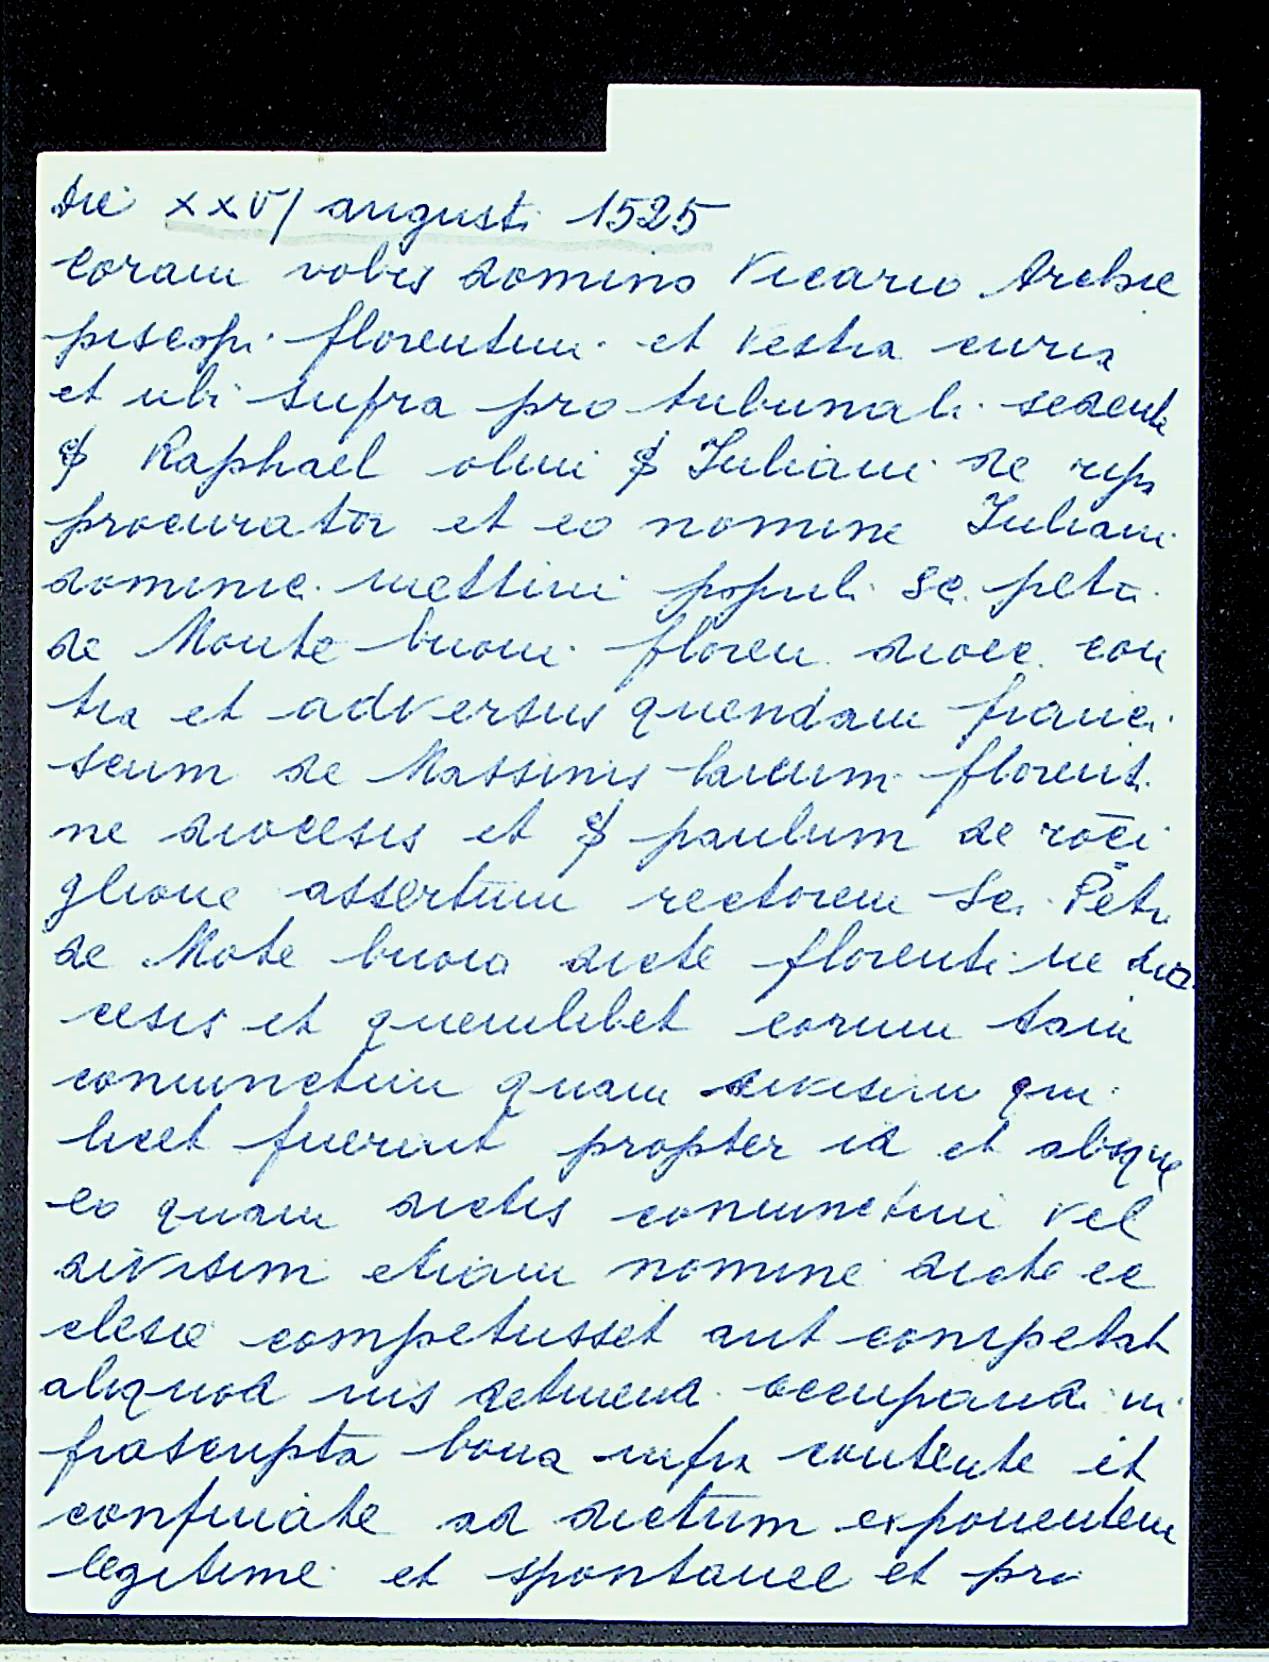 Die XXVI augusti 1525
Coram vobis domino Vicario Archie
piscopi florentini et vestra curia
et ubi supra pro tribunali sedente
Raphael olim Iuliani de ripa
procurator et eo nomine Iuliani
dominici mettini populi Sc. petri
de Monte buoni floren dioec. con
tra et adversus quendam franci
scum de Massinis laicum florenti
ne diocesis et paulum de roci
glione assertum rectorem Sc. Petri
de Mote buoni dicte florentine dio
cesis et quemlibet eorum tam
coniunctim quam divisim qui
licet fuerint propter id et absque
eo quam dictis coniunctim vel
divisim etiam nomine dicte ec
clesie competisset aut competat
aliquod ius detinend. occupandi in
frascripta bona infra contente et
confinate ad dictum exponentem
legitime et spontanee et pro